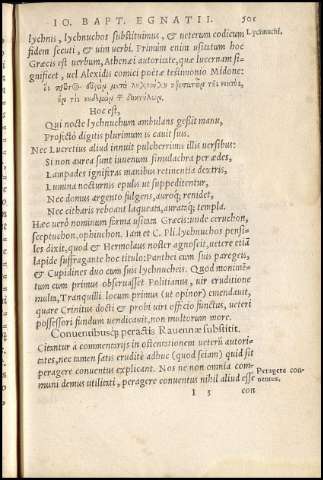 IO. BAPT. EGNATII. 501
lychnis, lychnuchos substituimus, & ueterum codicum Lychnuchi.
fidem secuti, & uim uerbi. Primùm enim usitatum hoc
Græcis est uerbum, Athenæi autoritate, quæ lucernam si-
gnificet, uel Alexidis comici poetæ testimonio Midone:
Hoc est,
Qui nocte lychnuchum ambulans gessit manu,
Profectò digitis plurimum is cauit suis.
Nec Lucretius aliud innuit pulcherrimis illis uersibus:
Si non aurea sunt iuuenum simulachra per ædes,
Lampades igniferas manibus retinentia dextris,
Lumina nocturnis epulis ut suppeditentur,
Nec domus argento fulgens, auroq́; renidet,
Nec citharis reboant laqueata, aurataq́; templa.
Hæc uerò nominum forma usitata Græcis: unde ceruchon,
sceptuchon, ophiuchon. Iam et C. Pli. lychnuchos pensi-
les dixit, quod & Hermolaus noster agnoscit, uetere etiã
lapide suffragante hoc titulo: Panthei cum suis paregeis,
& Cupidines duo cum suis lychnucheis. Quod monimẽ-
tum cum primus obseruasset Politianus, uir eruditione
multa, Tranquilli locum primus (ut opinor) emendauit,
quare Crinitus docti & probi uiri officio functus, ueteri
possessori fundum uendicauit, non multorum more.
Conuentibusq́; peractis Rauennæ substitit.
Citantur à commentarijs in ostentationem ueterũ autori-
tates, nec tamen satis eruditè adhuc (quod sciam) quid sit
peragere conuentus explicant. Nos ne non omnia com- Peragere con-
muni demus utilitati, peragere conuentus nihil aliud esse uentus.
I 3 con